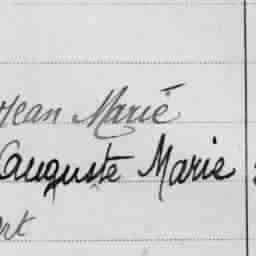 Jean Marie
Auguste Marie